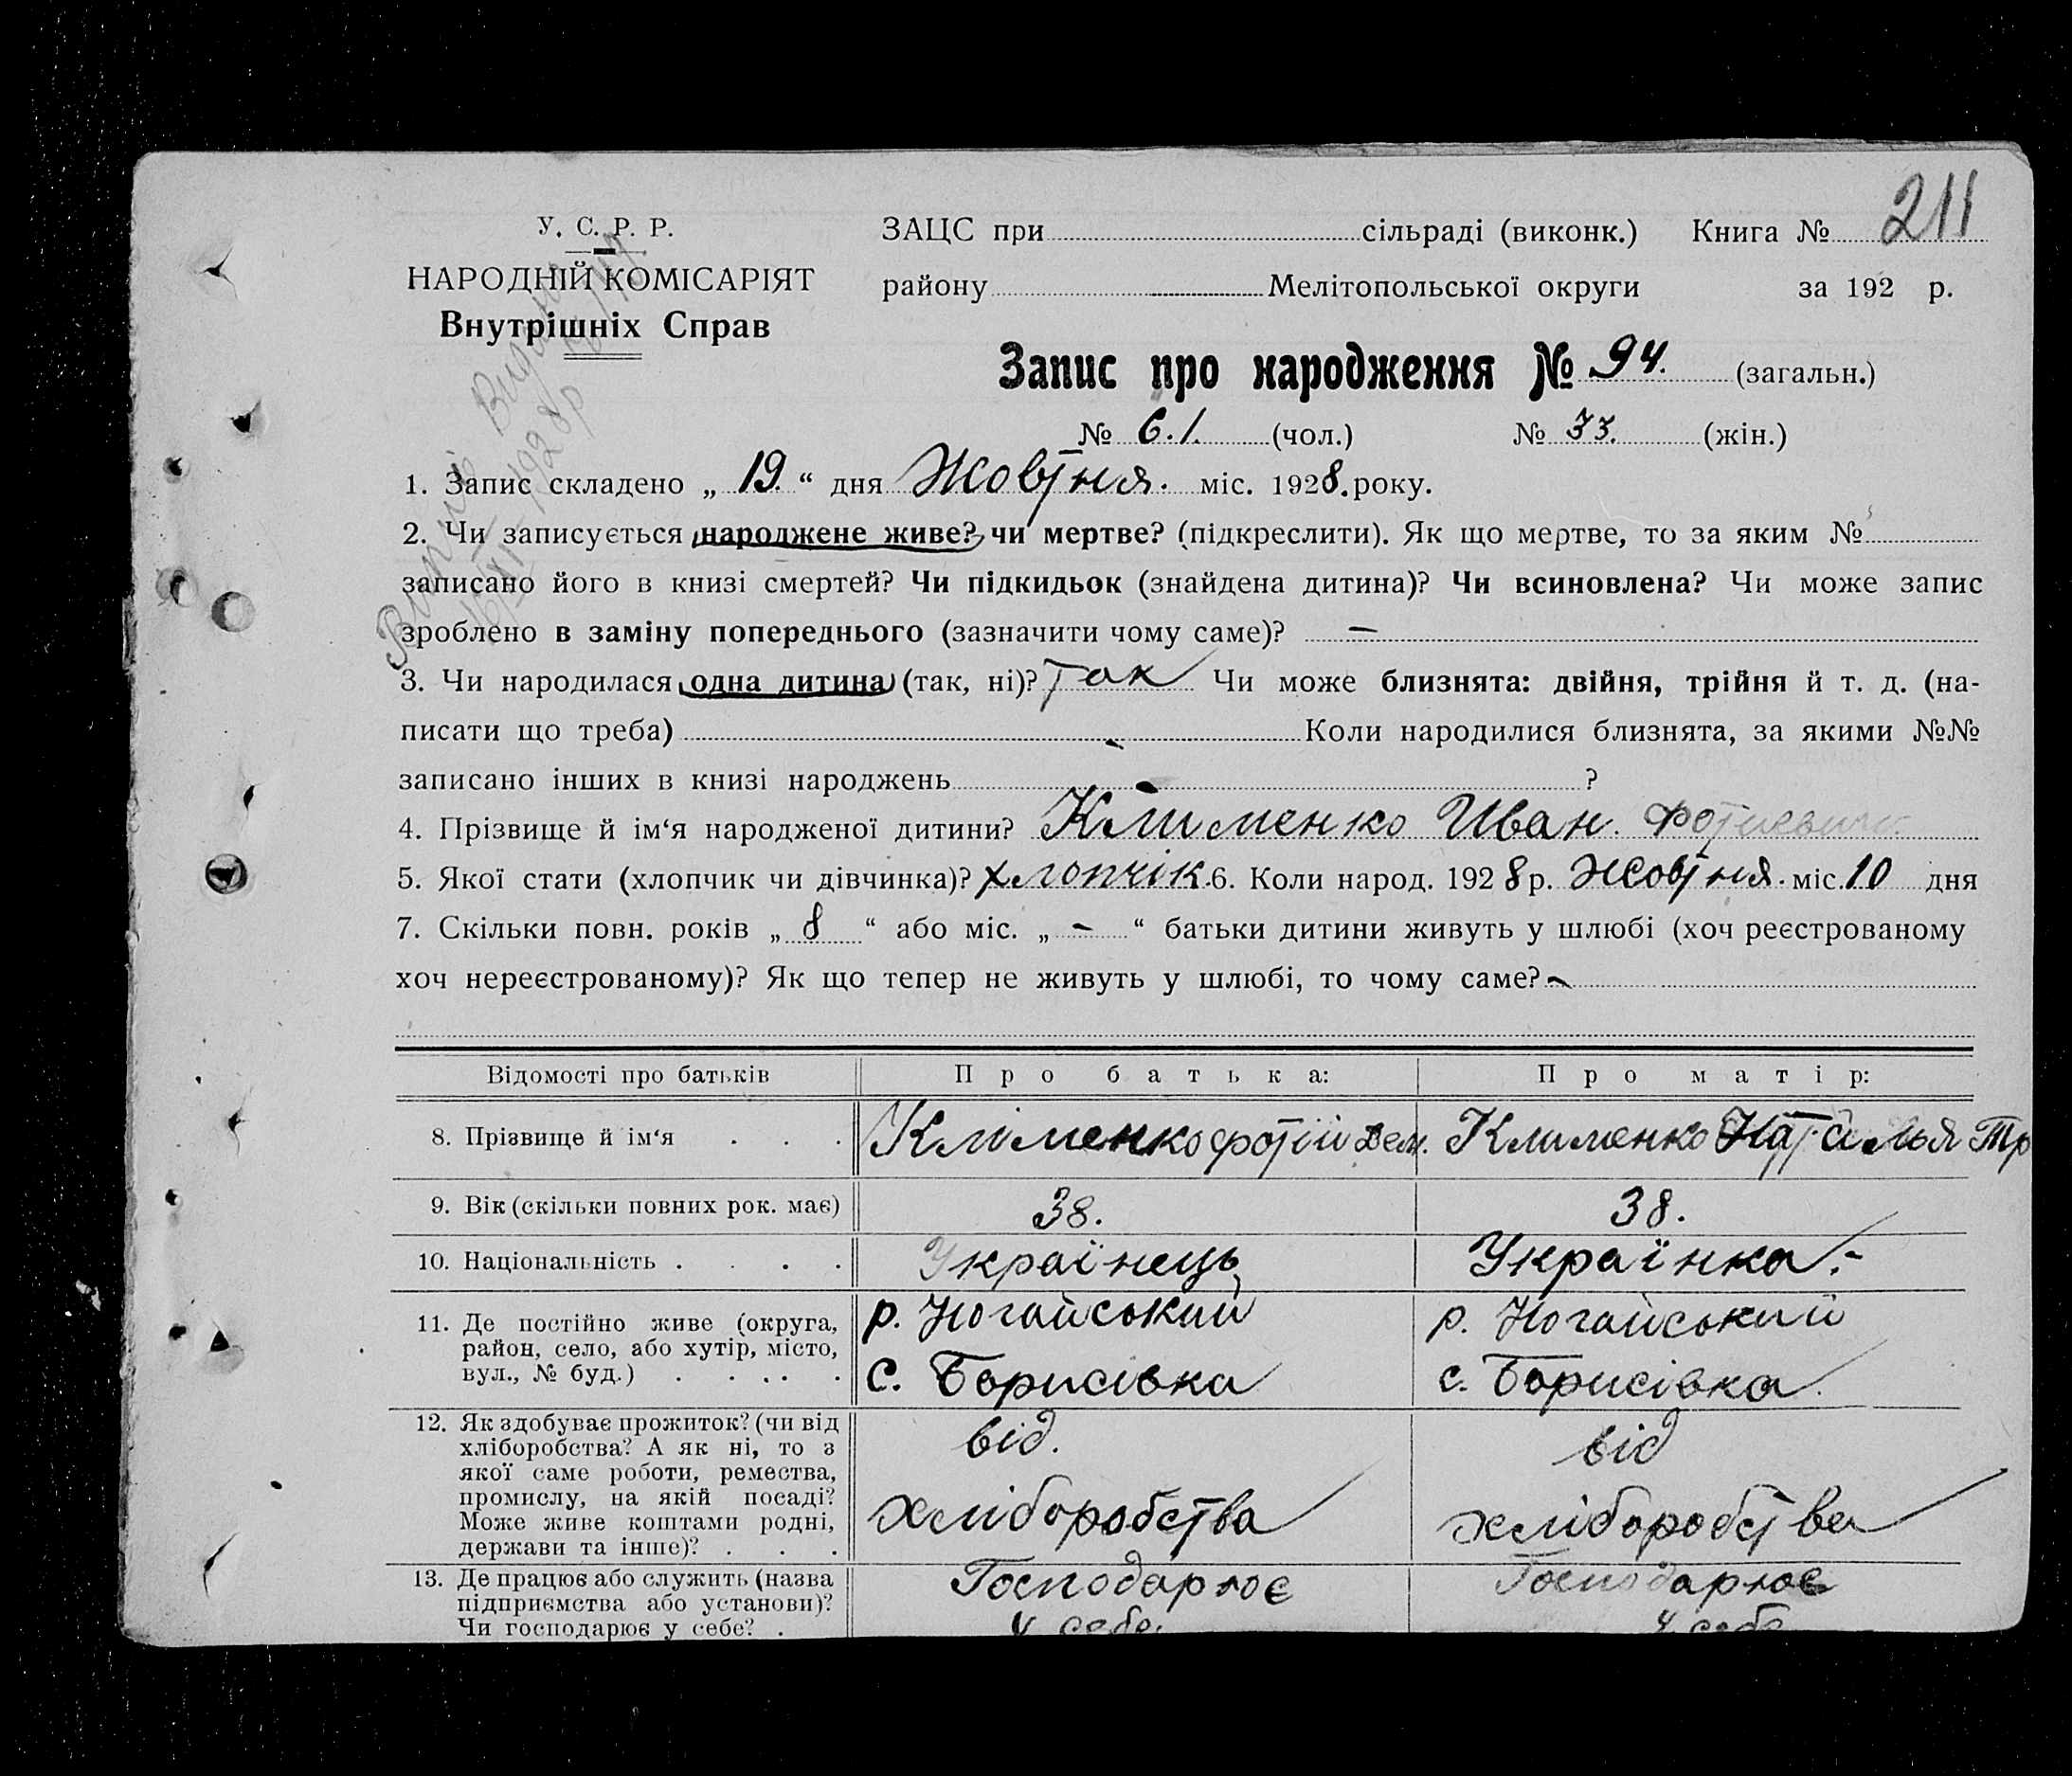 211
У. С. Р. Р.
НАРОДНІЙ КОМІСАРІЯТ
Внутрішніх Справ
ЗАЦС при сільраді (виконк.) Книга №
району Мелітопольської округи за 192 р.
Запис про народження № 94. (загальн.)
№ 61. (чол.) № 33. (жін.)
1. Запис складено „ 19. “ дня Жовтня. міс. 1928. року.
2. Чи записується народжене живе? чи мертве? (підкреслити). Як що мертве, то за яким №
записано його в книзі смертей? Чи підкидьок (знайдена дитина)? Чи всиновлена? Чи може запис
зроблено в заміну попереднього (зазначити чому саме)? —
3. Чи народилася одна дитина (так, ні)? Так Чи може близнята: двійня, трійня й т. д. (на-
писати що треба) Коли народилися близнята, за якими №№
записано інших в книзі народжень ?
4. Прізвище й ім‘я народженої дитини? Клименко Иван Фотиевич
5. Якої стати (хлопчик чи дівчинка)? хлопчік. 6. Коли народ. 1928 р. Жовтня. міс. 10 дня
7. Скільки повн. років „ 8 “ або міс. „ – “ батьки дитини живуть у шлюбі (хоч реєстрованому
хоч нереєстрованому)? Як що тепер не живуть у шлюбі, то чому саме? –
Відомості про батьків Про батька: Про матір:
8. Прізвище й ім‘я . . . Кліменко Фотій Дем. Клименко Наталья Тр
9. Вік (скільки повних рок. має) 38. 38.
10. Національність . . . . Українець Українка.-
11. Де постійно живе (округа,
район, село, або хутір, місто,
вул., № буд.) . . . . .
р. Ногайський
с. Борисівка
р. Ногайський
с. Борисівка.
12. Як здобуває прожиток? (чи від
хліборобства? А як ні, то з
якої саме роботи, ремества,
промислу, на якій посаді?
Може живе коштами родні,
держави та інше)? . . .
від.
хліборобства
від
хліборобства
13. Де працює або служить (назва
підприємства або установи)?
Чи господарює у себе? .
Господарює
у себе.
Господарює
у себе